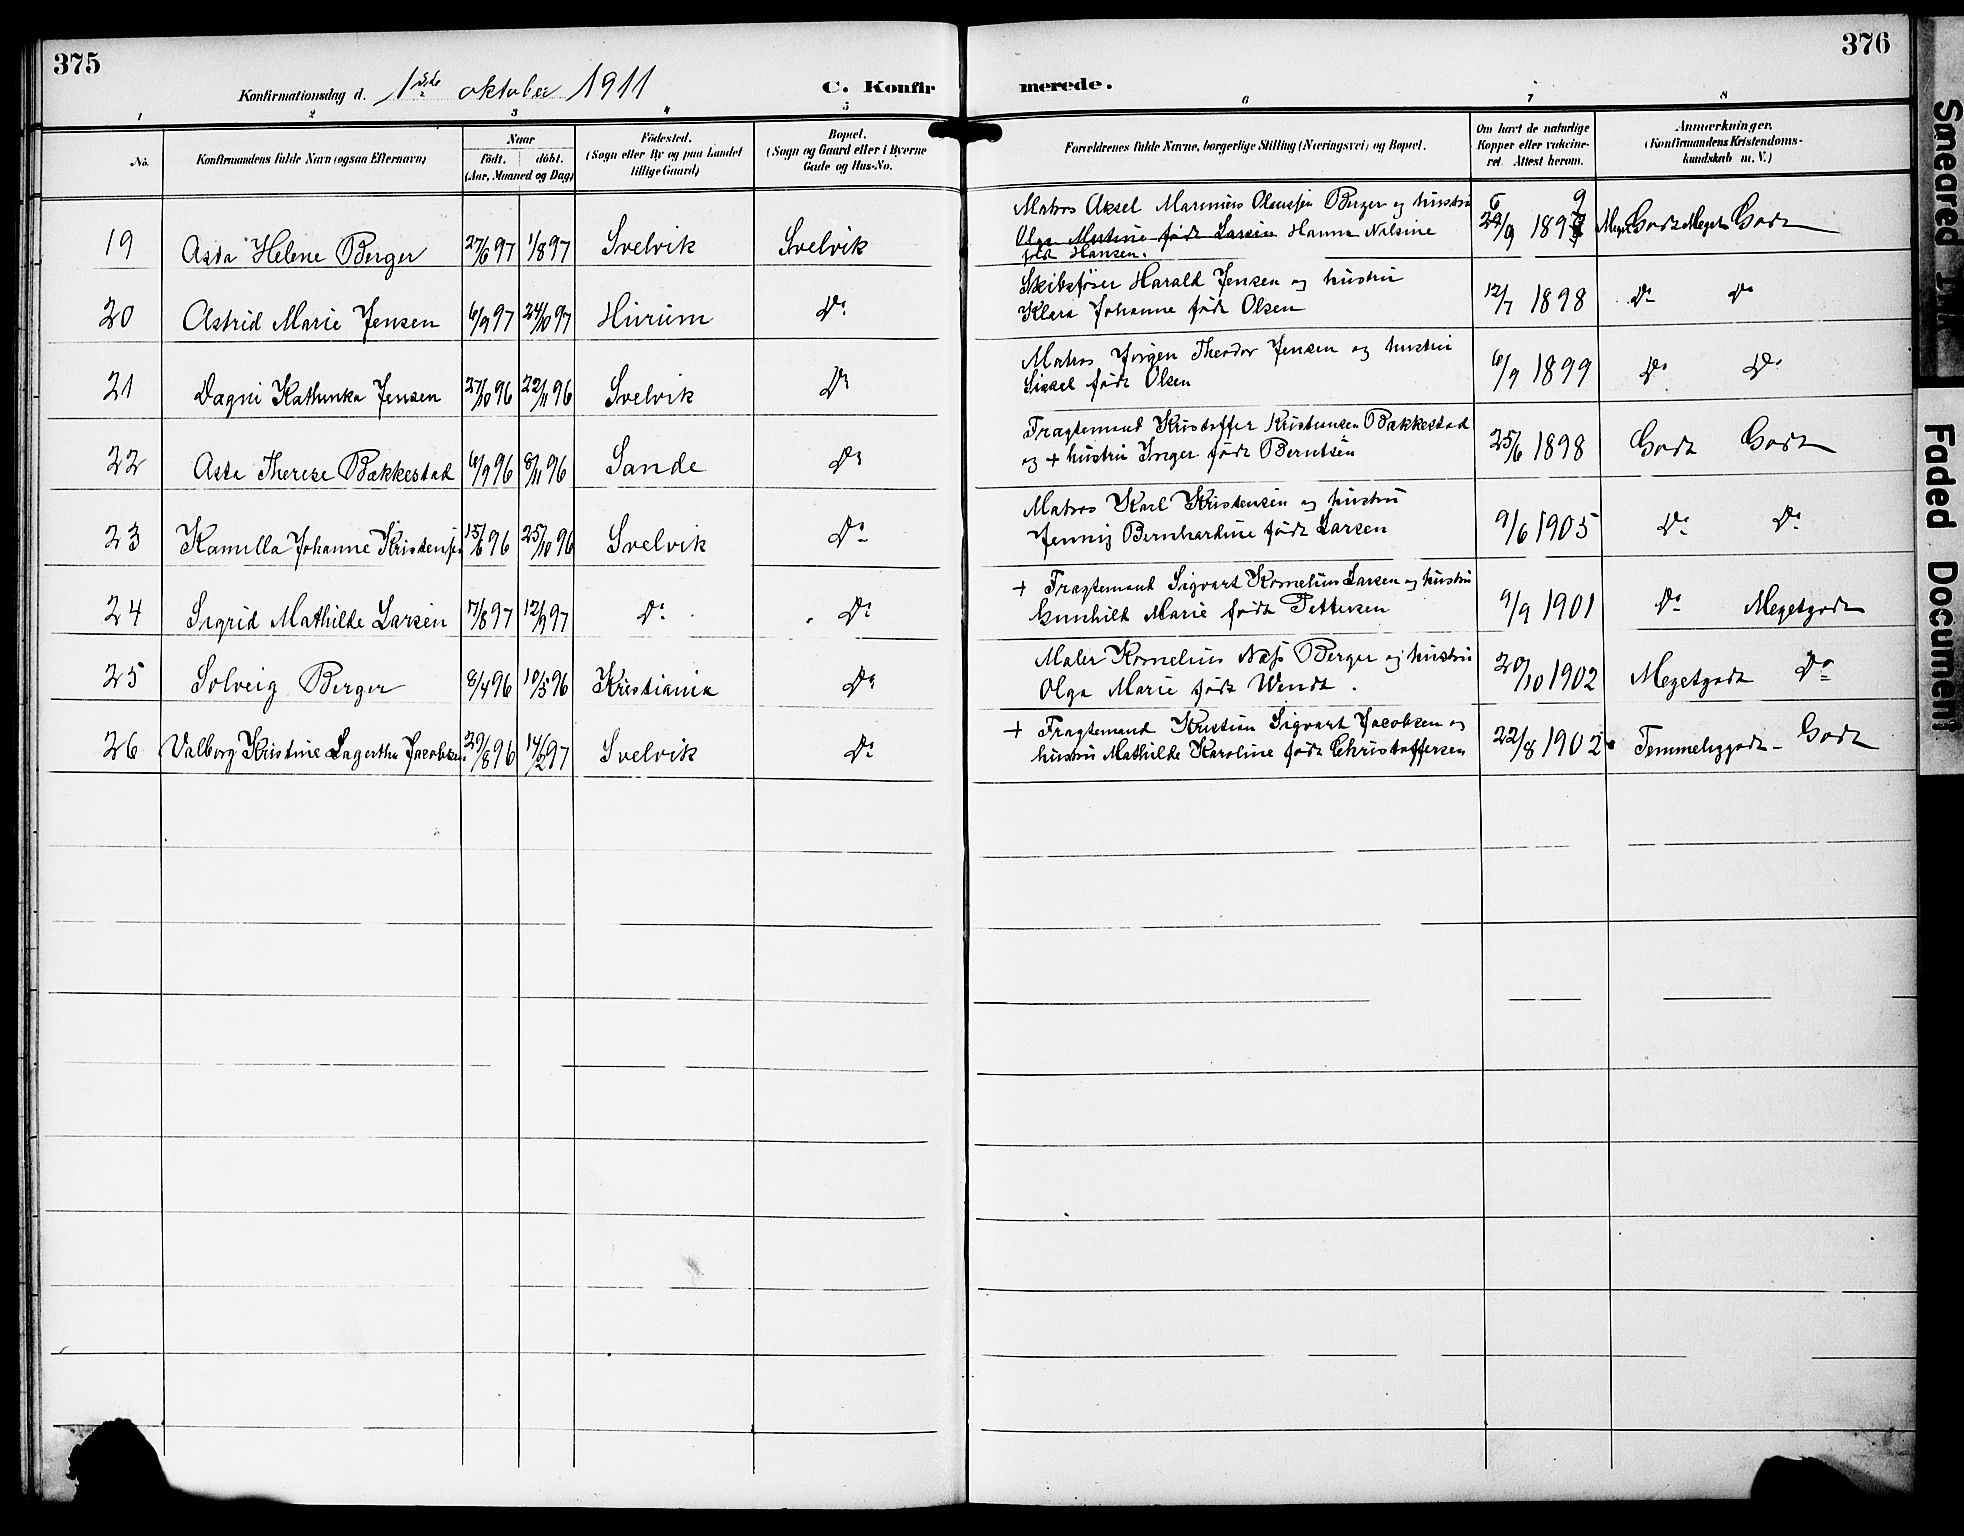 375
376
Konfirmationsdag d. 1ste oktober 1911
C. Konfir merede.
1 2 3 4 5 6 7 8
No.
Konfirmandens fulde Navn (ogsaa Efternavn)
Naar
født.
døbt.
(Aar, Maaned og Dag)
Fødested.
(Sogn eller By og paa Landet
tillige Gaard)
Bopæl.
(Sogn og Gaard eller i Byerne
Gade og Hus-No.
Forældrenes fulde Navne, borgerlige Stilling (Næringsvei) og Bopæl.
Om havt de naturlige
Kopper eller vakcine-
ret. Attest herom.
Anmærkninger.
(Konfirmandens Kristendoms-
kundskab m. V.)
19 Asta Helene Berger 27/6 97 1/8 97 Svelvik Svelvik
Matros Aksel Marinius Olaussen Berger og hustru
Olga Martine født Larsen Hanna Nilsine
født Hansen.
/9 189 Meget Godt Meget Godt
20 Astrid Marie Jensen 6/9 97 24/10 97 Hurum Do
Skibsfører Harald Jensen og hustru
Klara Johanne født Olsen
12/7 1898 Do Do
21 Dagni Kathinka Jensen 27/10 96 22/11 96 Svelvik Do
Matros Jørgen Theodor Jensen og hustru
Sissel født Olsen
6/9 1899 Do Do
22 Asta Therese Bakkestad 6/9 96 8/11 96 Sande Do
Fragtemand Kristoffer Kristensen Bakkestad
og + hustru Inger født Berntsen
25/6 1898 Godt Godt
23 Kamilla Johanne Kristensen 15/6 96 25/10 96 Svelvik Do
Matros Karl Kristensen og hustru
Jenny Bernhardine født Larsen
9/6 1905 Do Do
24 Sigrid Mathilde Larsen 17/8 97 12/9 97 Do Do
+ Fragtemand Sigvart Kornelius Larsen og hustru
Gunhild Marie født Pettersen
9/9 1901 Do Megetgodt
25 Solveig Berger 8/4 96 10/5 96 Kristiania Do
Maler Kornelius Næss Berger og hustru
Olga Marie født Wendt.
20/10 1902 Megetgodt Do
26 Valborg Kristine Lagertha Jacobsen 29/8 96 14/2 97 Svelvik Do
+ Fragtemand Kristian Sigvart Jacobsen og
hustru Mathilde Karoline født Christoffersen
22/8 1902 Temmeliggodt - Godt
Smeared Ink
Faded Document